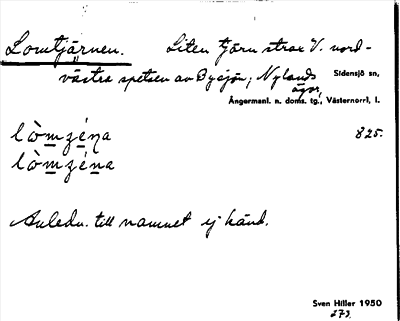 Lomtjärnen. Liten tjärn strax V. nord-
västra spetsen av Bysjön; Nylands Sidensjö sn,
ägor, Ångermanl. n. doms. tg., Västernorrl, l.
lòmzéna 825.
lòmzéna
Anledn. till namnet ej känd.
Sven Hiller 1950
273.